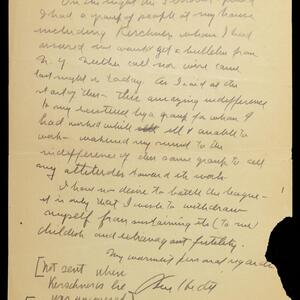 On the night the
I had a group of people at my house
including Kerschner whom I had
assured we would get a bulletin from
N.Y. Neither call nor wire came
last night or today. As I said at the
start of this - this amazing indifference
to my existence by a group for whom I
had worked while ill & unable to
work - wakened my mind to the
indifference of the same group to all
my attitudes toward its work
I have no desire to battle the league -
it is only that I wish to withdraw
myself from sustaining its (to me)
childish and extravagant futility.
My warmest personal regards
[not sent when
Kerschner's lie
was uncovered]